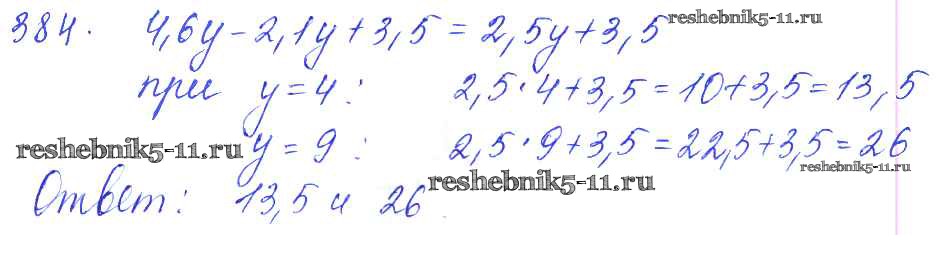 384. 4,6y - 2,1y + 3,5 = 2,5y + 3,5 reshebnik5-11.ru
при y = 4: 2,5 · 4 + 3,5 = 10 + 3,5 = 13,5
reshebnik5-11.ru y = 9: 2,5 · 9 + 3,5 = 22,5 + 3,5 = 26
reshebnik5-11.ru
reshebnik5-11.ru
Ответ: 13,5 и 26.